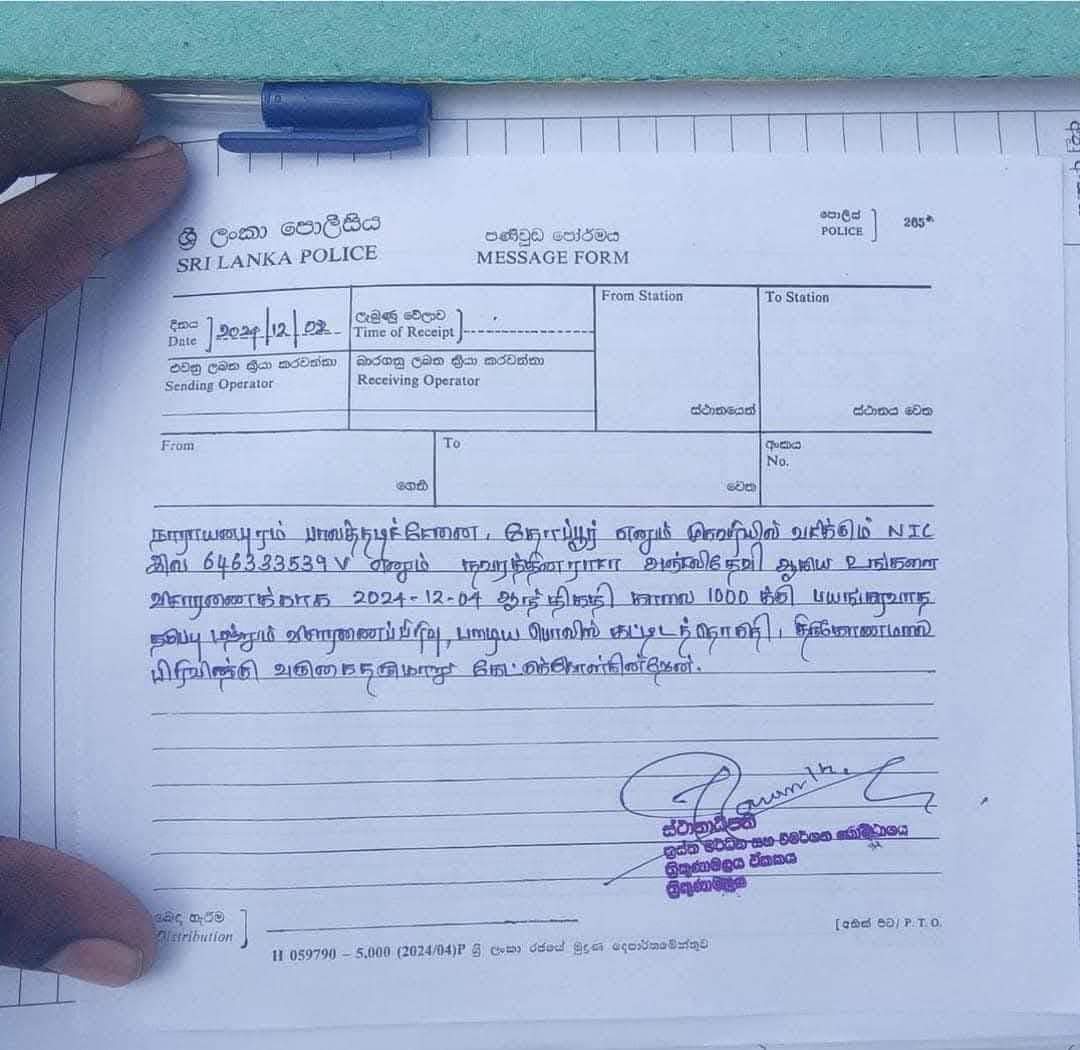 ශ්‍රී ලංකා පොලීසිය
SRI LANKA POLICE
පණිවුඩ පෝර්මය
MESSAGE FORM
පොලිස්
POLICE
265
දිනය
Date
2024/12/02
ලැබුණු වේලාව
Time of Receipt
From Station
ස්ථානයෙන්
To Station
ස්ථානය වෙත
එවනු ලබන ක්‍රියා කරවන්නා
Sending Operator
බාරගනු ලබන ක්‍රියා කරවන්නා
Receiving Operator
From
ගෙනි
To
වෙත
අංකය
No.
நாராயணபுரம் பாலத்தடிச்சேனை, தோப்பூர் எனும் முகவரியில் வசிக்கும் NIC
இல 646333539V எனும் நவரத்தினராசா அஞ்சலிதேவி ஆகிய உங்களை
விசாரணைக்காக 2024-12-04 ஆந் திகதி காலை 1000 க்கு பயங்கரவாத
தடுப்பு மற்றும் விசாரணைப்பிரிவு, பழைய பொலிஸ் கட்டிடத்தொகுதி, திருகோணமலை
பிரிவிற்கு வருகைதருமாறு கேட்டுக்கொள்கின்றேன்.
ස්ථානාධිපති
ත්‍රස්ත මර්ධන සහ විමර්ශන කොට්ඨාශය
ත්‍රිකුණාමලය ඒකකය
ත්‍රිකුණාමලය
බෙදා හැරීම
Distribution
[අනික් පිට/ P. T. O.
H 059790 – 5,000 (2024/04)P ශ්‍රී ලංකා රජයේ මුද්‍රණ දෙපාර්තමේන්තුව